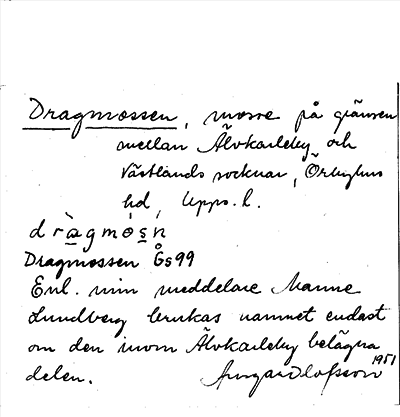 Dragmossen, mosse på gränsen
mellan Älvkarleby och
Västlands socknar, Örbyhus
hd, Upps. l.
dràgmós̲n̥
Dragmossen Ös99
Enl. min meddelare Manne
Lundberg brukas namnet endast
om den inom Älvkarleby belägna
delen. Olofsson 1951